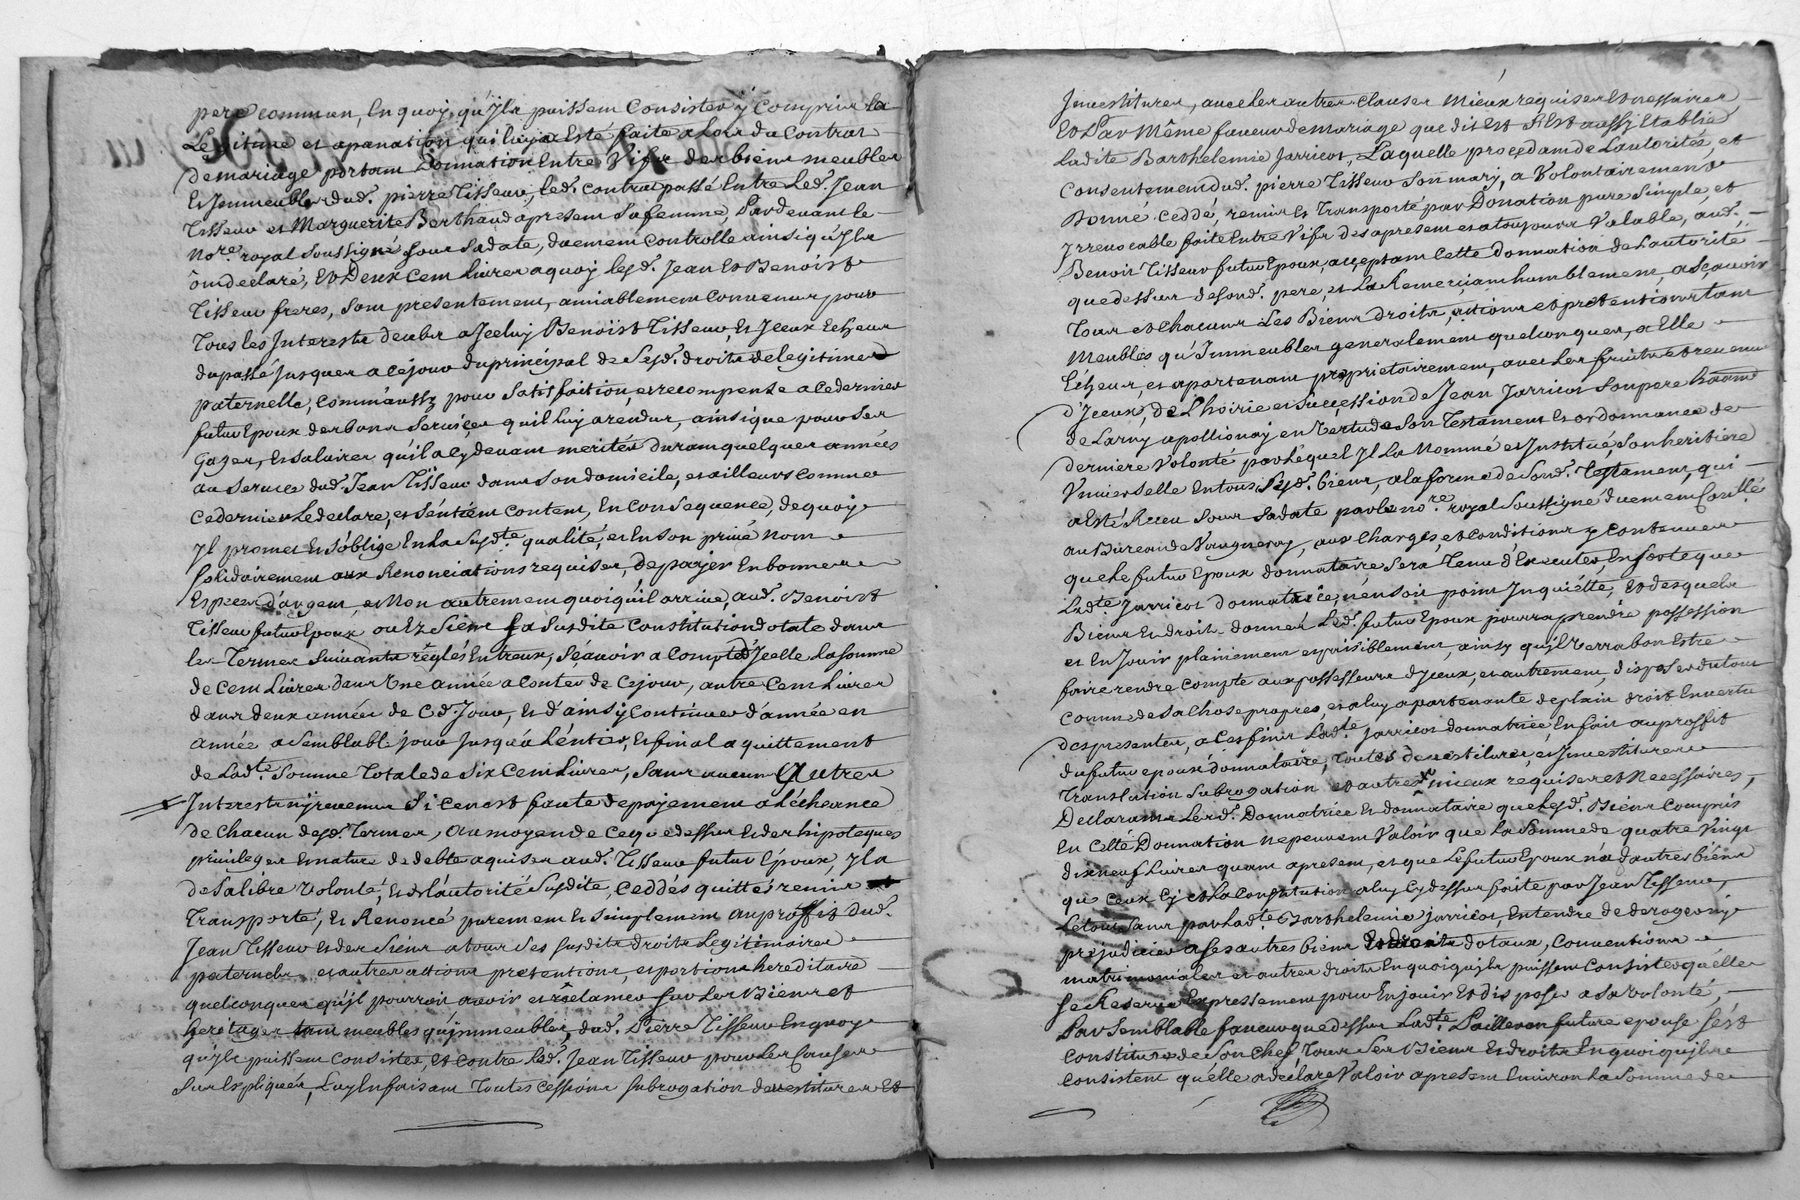 pere commun, En quoy qu'Ils puissent Consister y Compris la
Legitime et apanation qui luy a Esté faite a Lors du Contrat
de mariage portant Donnation Entre Vifs des biens meubles
Et Immeubles dud. pierre Tisseur, led. contrat passé Entre Led. Jean
Tisseur et Marguerite Berthaud apresent Sa femme, Par devant le
No.re royal Soussigné Sous Sadate, duement Controllé ainsi qu'Ils
ont declaré, Et Deux Cent Livres a quoy lesd. Jean Et Benoist
Tisseur freres, Sont presentement, amiablement Convenus pour
Tous les Interests deubs a Iceluy Benoist Tisseur, Et Iceux Echeus
du passé Jusques a Cejour du principal de Sesd. droits de legitime
paternelle, comm'aussy pour Satisfaction et recompense a ce dernier
futur Epoux des bons Services qu'il luy a rendus, ainsi que pour Ses
Gages, Et Salaires qu'il a cy devant merités durant quelques années
au Service dud. Jean Tisseur dans Son domicile, et ailleurs Comme
Ce dernier Le declare, et S'en tient Content, En Consequence, de quoy
Il promet Et S'oblige En La Susd.te qualité, et En Son privé Nom
Solidairement aux Renonciations requises, De payer En bonnes
Especes d'argent, et Non autrement quoiqu'il arrive, aud. Benoist
Tisseur futur Epoux ou Ez Siens La Susdite Constitution dotale dans
les Termes Suivants reglés Entreux, Scavoir a Compte d'Icelle La Somme
de Cent Livres dans Une année a Conter de Cejour, autre Cent Livres
dans deux années de C.d. Jour, Et d'ainsy Continuer d'année en
année a Semblable jour Jusqu'a L'entier, Et final aquittement
de Lad.te Somme Totale de Six Cent Livres, Sans aucuns Autres
Interests ny revenus Si Ce n'est faute de payement a L'echeance
de Chacun desd. Termes, Au moyen de Ce que dessus Et des hipoteques
privileges Et nature de debte aquises aud. Tisseur futur Epoux, Il a
de Sa libre Volonté, Et de L'autorité Susdite, Ceddés quitté, remis et
Transporté, Et Renoncé purement Et Simplement au proffit dud.
Jean Tisseur Et des Siens a tous Ses Susdits droits Legitimaires
paternels, et autres actions pretentions, et portions hereditaires
quelconques qu'il pourroit avoir et reclamer Sur Les Biens et
heritages tant meubles qu'immeubles, dud. Pierre Tisseur En quoy
qu'ils puissent Consister, Et contre Led. Jean Tisseur pour Les Causes
Sus Expliquées, Luy En faisant Toutes Cessions Subrogation devestitures Et
Investitures, avec Les autres Clauses Mieux requises Et necessaires,
Et Par Même faveur de mariage que dit Est S'Est aussy Etablie
Ladite Barthelemie Jarricot, Laquelle procedant de L'autorités, et
Consentement dud. pierre Tisseur Son mary, a Volontairement
Donné, Ceddé, remis Et Transporté par Donation pure Simple, et
Irrevocable faite Entre Vifs des apresent et a tousjours Valable, aud.
Benoit Tisseur futur Epoux, acceptant Cette donnation de L'autorité
que dessus de Sond. pere, et La Remerciant humblement, a Sçavoir
Tous et Chacuns Les Biens Droits, actions et pretentions tant
Meubles qu'Immeubles generalement quelconques, a Elle
Echeus, et apartenant proprietairement, avec Les fruits et revenus
d'Iceux, de L'hoirie et Succession de Jean Jarricot Son pere
de Larny apollionay en Vertu de Son Testament Et ordonnance de
derniere Volonté par Lequel Il La Nommé et Institué, Son heritiere
Universelle En tous Sesd. biens, a la forme de Sond. Testament, qui
a Esté Reçu Sous Sadate par le no.re royal Soussigné duement Con.llé
au Bureau de Vaugneray, aux Charges, et Conditions y Contenues
que le futur Epoux donnataire Sera Tenu d'Executer, En Sorte que
Lad.te Jarricot donnatrice, n'en Soit point Inquiétté, Et desquels
Biens Et droits donnés Led. futur Epoux pourra prendre possession
et En Jouir plainement et paisiblement, ainsy qu'il Verra bon Estre
faire rendre Compte aux possesseurs d'Iceux, et autrement, disposer du tout
Comme de Sa Chose propre, et a luy apartenante de plain droit En vertu
des presentes, a Ces fins Lad.te Jarricot donnatrice, En fait au proffit
du futur epoux donnataire, Toutes devestitures, et Investitures
Translation Subrogation et autres mieux requises et Necessaires,
Declarants Lesd. Donnatrice Et donnataire que lesd. Biens Compris
En Cette Donnation ne peuvent Valoir que La Somme de quatre Vingt
dix neuf Livres quant apresent, et que Le futur Epoux n'a d'autres biens
que Ceux Cy et La Constitution a luy Cy dessus faite par Jean Tisseur,
Le tout Sans par Lad.te Barthelemie Jarricot, Entendre de deroger ny
prejudicier a Ses autres biens Et droits dotaux, Conventions
matrimoniales et autres droits En quoi qu'ils puissent Consister qu'elle
Se Reserve Expressement pour En jouir Et disposer a Sa Volonté,
Par Semblable faveur que dessus Lad.te Paillesson future epouse S'est
Constituée de Son Chef, Tous Ses Biens Et droits En quoi qu'ils
Consistent qu'elle a declaré Valoir apresent Environ La Somme de